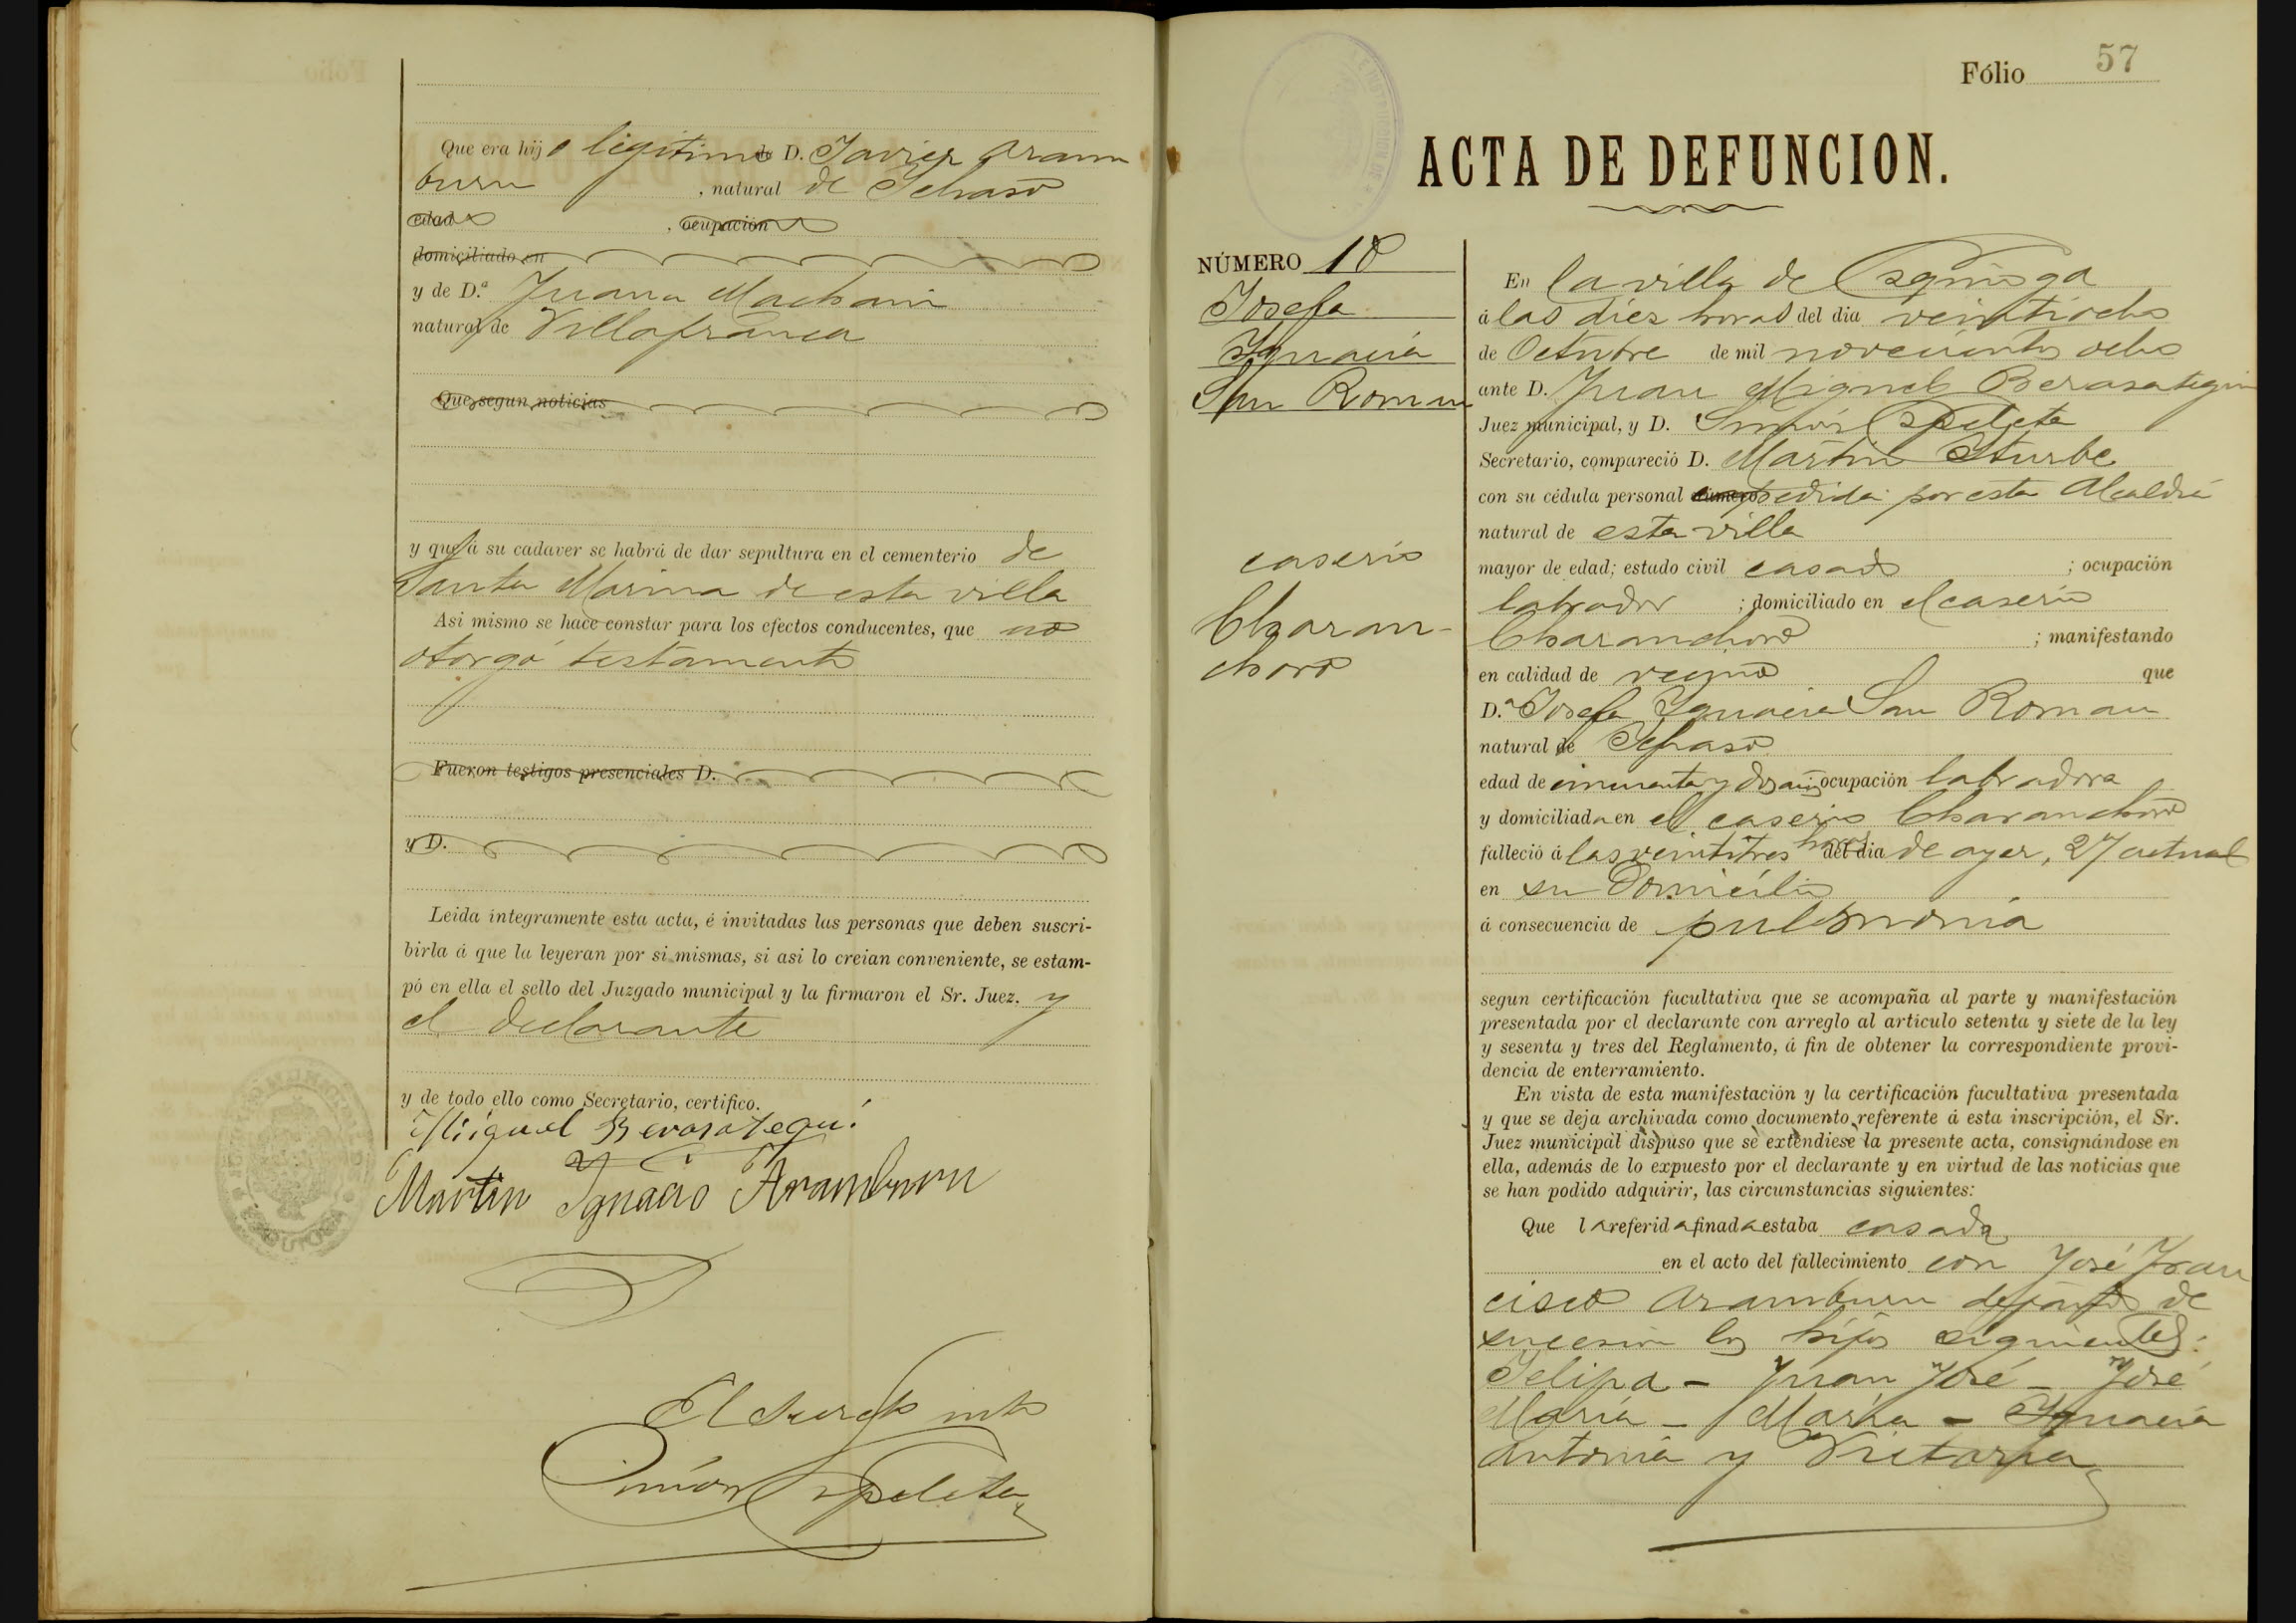 Que era hijo legitimo de D. Javier Aram
buru, natural de Ichaso
edad, ocupación
domiciliado en
y de D.ª Juana Machain
natural de Villafranca
Que segun noticias
y que á su cadaver se habrá de dar sepultura en el cementerio de
Santa Marina de esta villa
Asi mismo se hace constar para los efectos conducentes, que no
otorgó testamento
Fueron testigos presenciales D.
y D.
Leida íntegramente esta acta, é invitadas las personas que deben suscri-
birla á que la leyeran por si mismas, si asi lo creian conveniente, se estam-
pó en ella el sello del Juzgado municipal y la firmaron el Sr. Juez. y
el declarante
y de todo ello como Secretario, certifico.
Miguel Berasategui
Martin Ignacio Aramburu
El Secreto into
Simón Ezpeleta
Fólio 57
ACTA DE DEFUNCION.
NÚMERO 10
Josefa
Ignacia
San Roman
caserio
Charan-
choro
En la villa de Ezquioga
á las diez horas del dia veintiocho
de Octubre de mil novecientos ocho
ante D. Juan Miguel Berasategui
Juez municipal, y D. Simón Ezpeleta
Secretario, compareció D. Martin Iturbe
con su cédula personal expedida por esta Alcaldia
natural de esta villa
mayor de edad; estado civil casado; ocupación
labrador; domiciliado en el caserio
Charanchoro; manifestando
en calidad de vecino que
D.ª Josefa Ignacia San Roman
natural de Ichaso
edad de cincuenta y dos años ocupación labradora
y domiciliada en el caserio Charanchoro
falleció á las veintitres horas del dia de ayer, 27 actual
en su domicilio
á consecuencia de pulmonia
segun certificación facultativa que se acompaña al parte y manifestación
presentada por el declarante con arreglo al artículo setenta y siete de la ley
y sesenta y tres del Reglamento, á fin de obtener la correspondiente provi-
dencia de enterramiento.
En vista de esta manifestación y la certificación facultativa presentada
y que se deja archivada como documento referente á esta inscripción, el Sr.
Juez municipal dispuso que se extendiese la presente acta, consignándose en
ella, además de lo expuesto por el declarante y en virtud de las noticias que
se han podido adquirir, las circunstancias siguientes:
Que la referida finada estaba casada
en el acto del fallecimiento con José Fran
cisco Aramburu dejando de
sucesion los hijos siguientes:
Felipa - Juan José - José
Maria - Maria - Ignacia
Antonia y Victoria